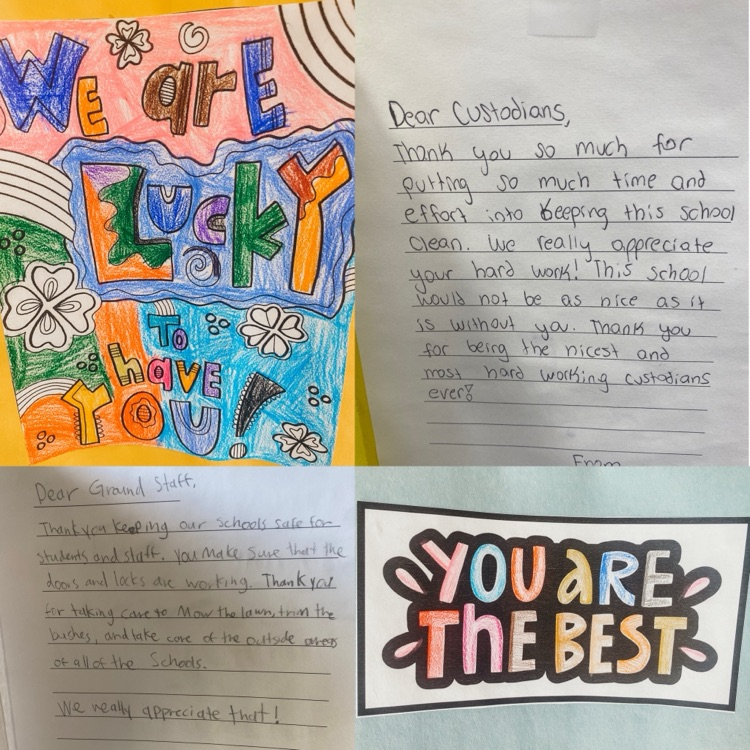 We are
Lucky
To
have
You!
Dear Custodians,
Thank you so much for
putting so much time and
effort into keeping this school
clean. We really appreciate
your hard work! This school
would not be as nice as it
is without you. Thank you
for being the nicest and
most hard working custodians
ever!
From
Dear Ground Staff,
Thank you keeping our schools safe for
students and staff. You make sure that the
doors and locks are working. Thank you
for taking care to Mow the lawn, trim the
bushes, and take care of the outside areas
of all of the Schools.
We really appreciate that!
YOU aRE
THE BEST